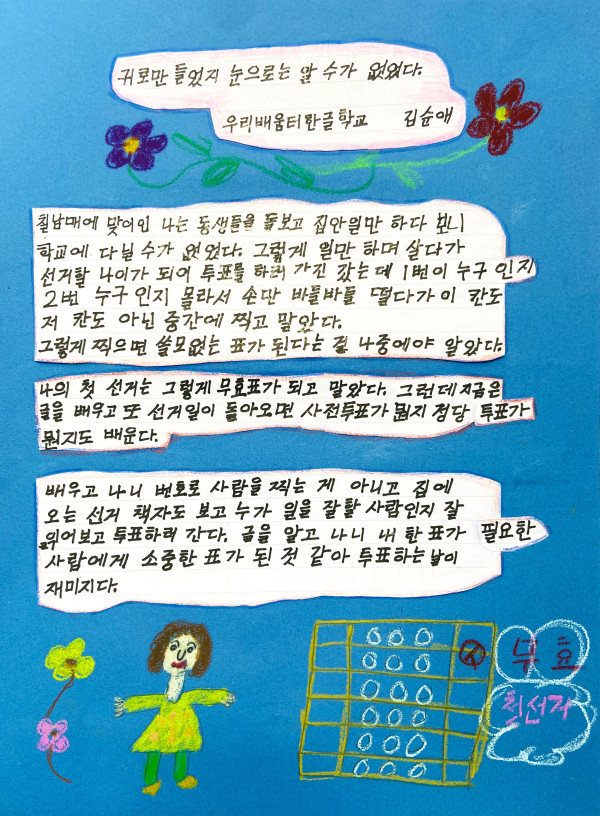 귀로만 들었지 눈으로는 알 수가 없었다.
우리배움터한글학교 김순애
칠남매에 맞이인 나는 동생들을 돌보고 집안일만 하다 보니
학교에 다닐 수가 없었다. 그렇게 일만 하며 살다가
선거할 나이가 되어 투표를 하러 가긴 갔는데 1번이 누구인지
2번 누구인지 몰라서 손만 바들바들 떨다가 이 칸도
저 칸도 아닌 중간에 찍고 말았다.
그렇게 찍으면 쓸모없는 표가 된다는 걸 나중에야 알았다.
나의 첫 선거는 그렇게 무효표가 되고 말았다. 그런데 지금은
글을 배우고 또 선거일이 돌아오면 사전투표가 뭔지 정당 투표가
뭔지도 배운다.
배우고 나니 번호로 사람을 찍는 게 아니고 집에
오는 선거 책자도 보고 누가 일을 잘할 사람인지 잘
읽어보고 투표하러 간다. 글을 알고 나니 내 한 표가 필요한
사람에게 소중한 표가 된 것 같아 투표하는 날이
재미지다.
무효
첫선거